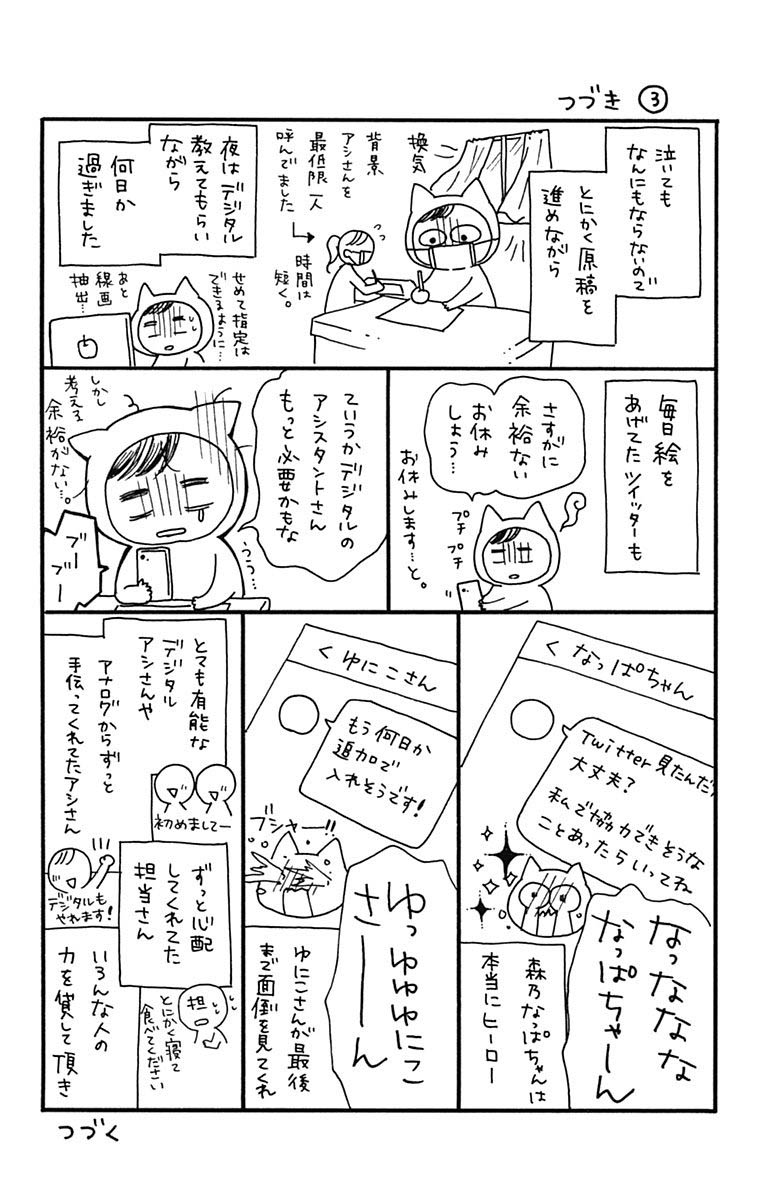 つづき ③
泣いても
なんにもならないので
とにかく原稿を
進めながら
換気
背景
アシさんを
最低限一人
呼んでました
→時間は
短く。
夜はデジタル
教えてもらい
ながら
何日か
過ぎました
せめて指定は
できるように…
あと
線画
抽出…
毎日絵を
あげてたツイッターも
さすがに
余裕ない
お休み
しよう…
プチ
プチ
お休みします…と。
ていうかデジタルの
アシスタントさん
もっと必要かもな
うぅ…
しかし
考える
余裕がない…。
ブー
ブー
< なっぱちゃん
Twitter見たんだけ
大丈夫?
私で協力できそうな
ことあったらいってね
なっななな
なっぱちゃーん
森乃なっぱちゃんは
本当にヒーロー
< ゆにこさん
もう何日か
追加で
入れそうです!
ブシャー!!
ゆっゅゅゆにこ
さーーん
ゆにこさんが最後
まで面倒を見てくれ
とても有能な
デジタル
アシさんや
初めましてー
アナログからずっと
手伝ってくれてたアシさん
デジタルも
やれます!
ずっと心配
してくれてた
担当さん
担
とにかく寝て
食べてください
いろんな人の
力を貸して頂き
つづく